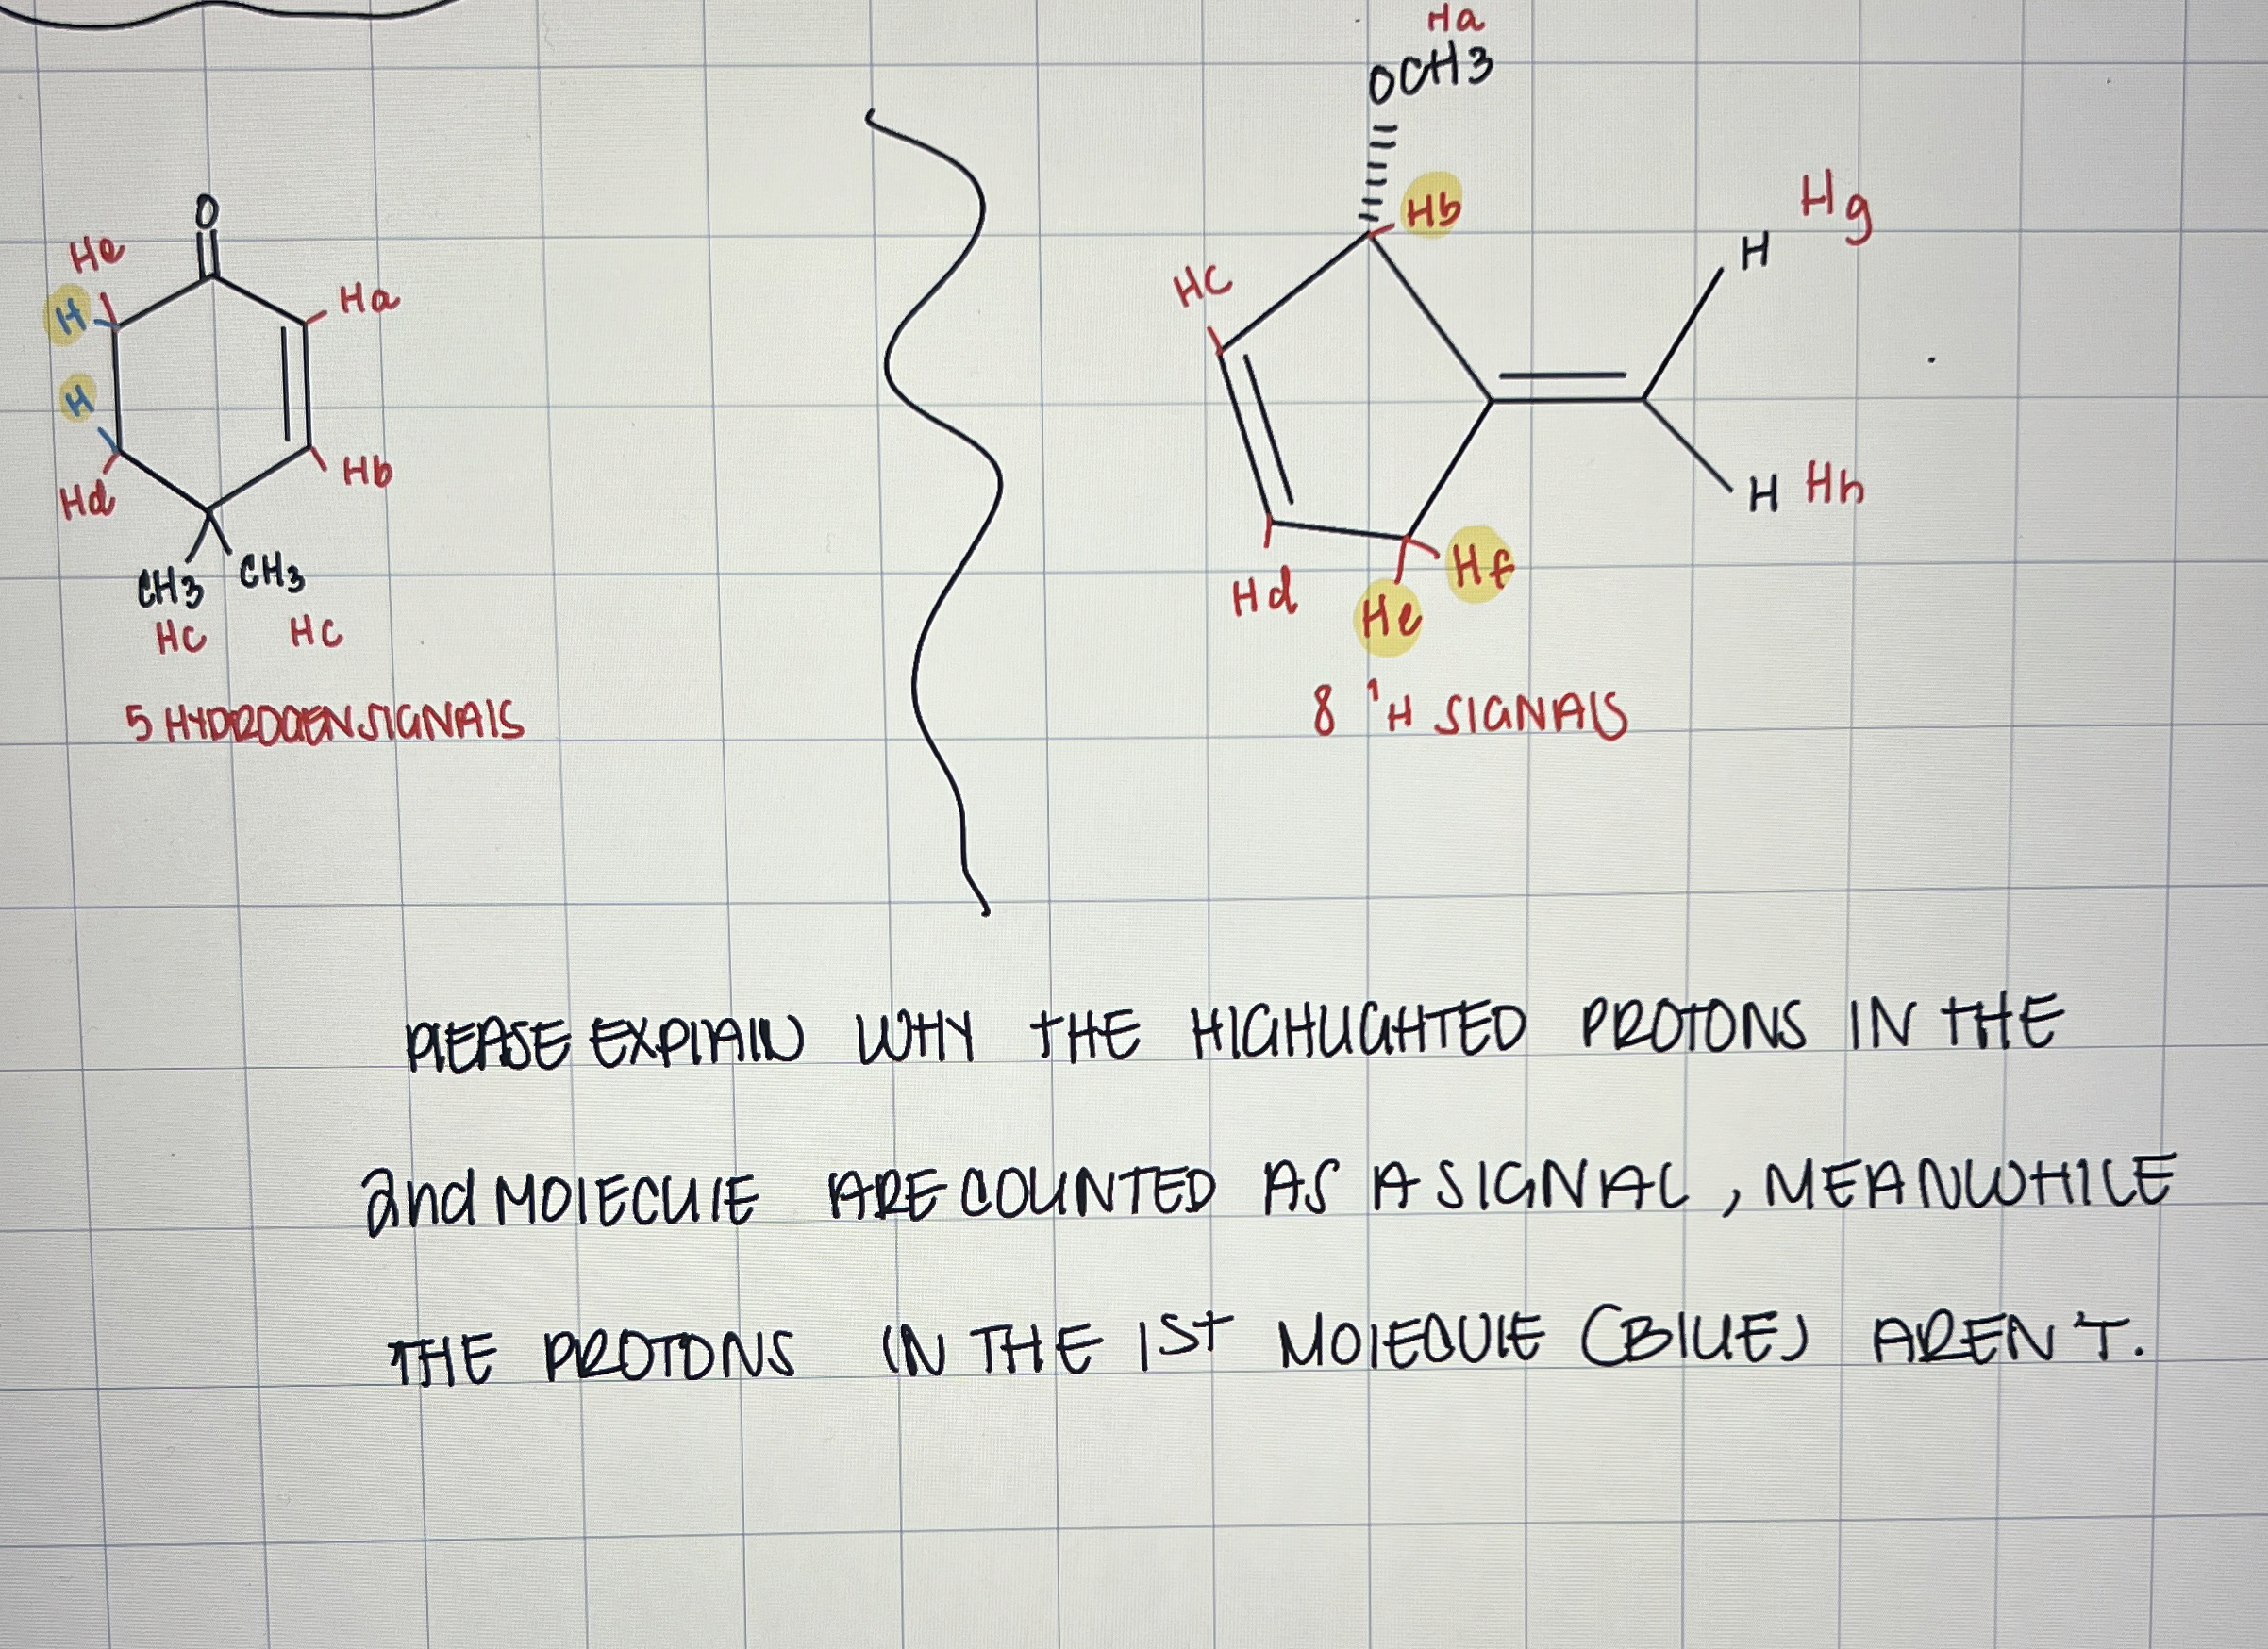 Ha
OCH3
O
Hb
Hg
H
He
H
Ha
HC
H
Hb
Hd
H Hh
CH3 CH3
HC HC
Hd He Hf
5 HYDROGEN SIGNALS
8 1H SIGNALS
PLEASE EXPLAIN WHY THE HIGHLIGHTED PROTONS IN THE
2nd MOLECULE ARE COUNTED AS A SIGNAL, MEANWHILE
THE PROTONS IN THE 1ST MOLECULE (BLUE) AREN'T.